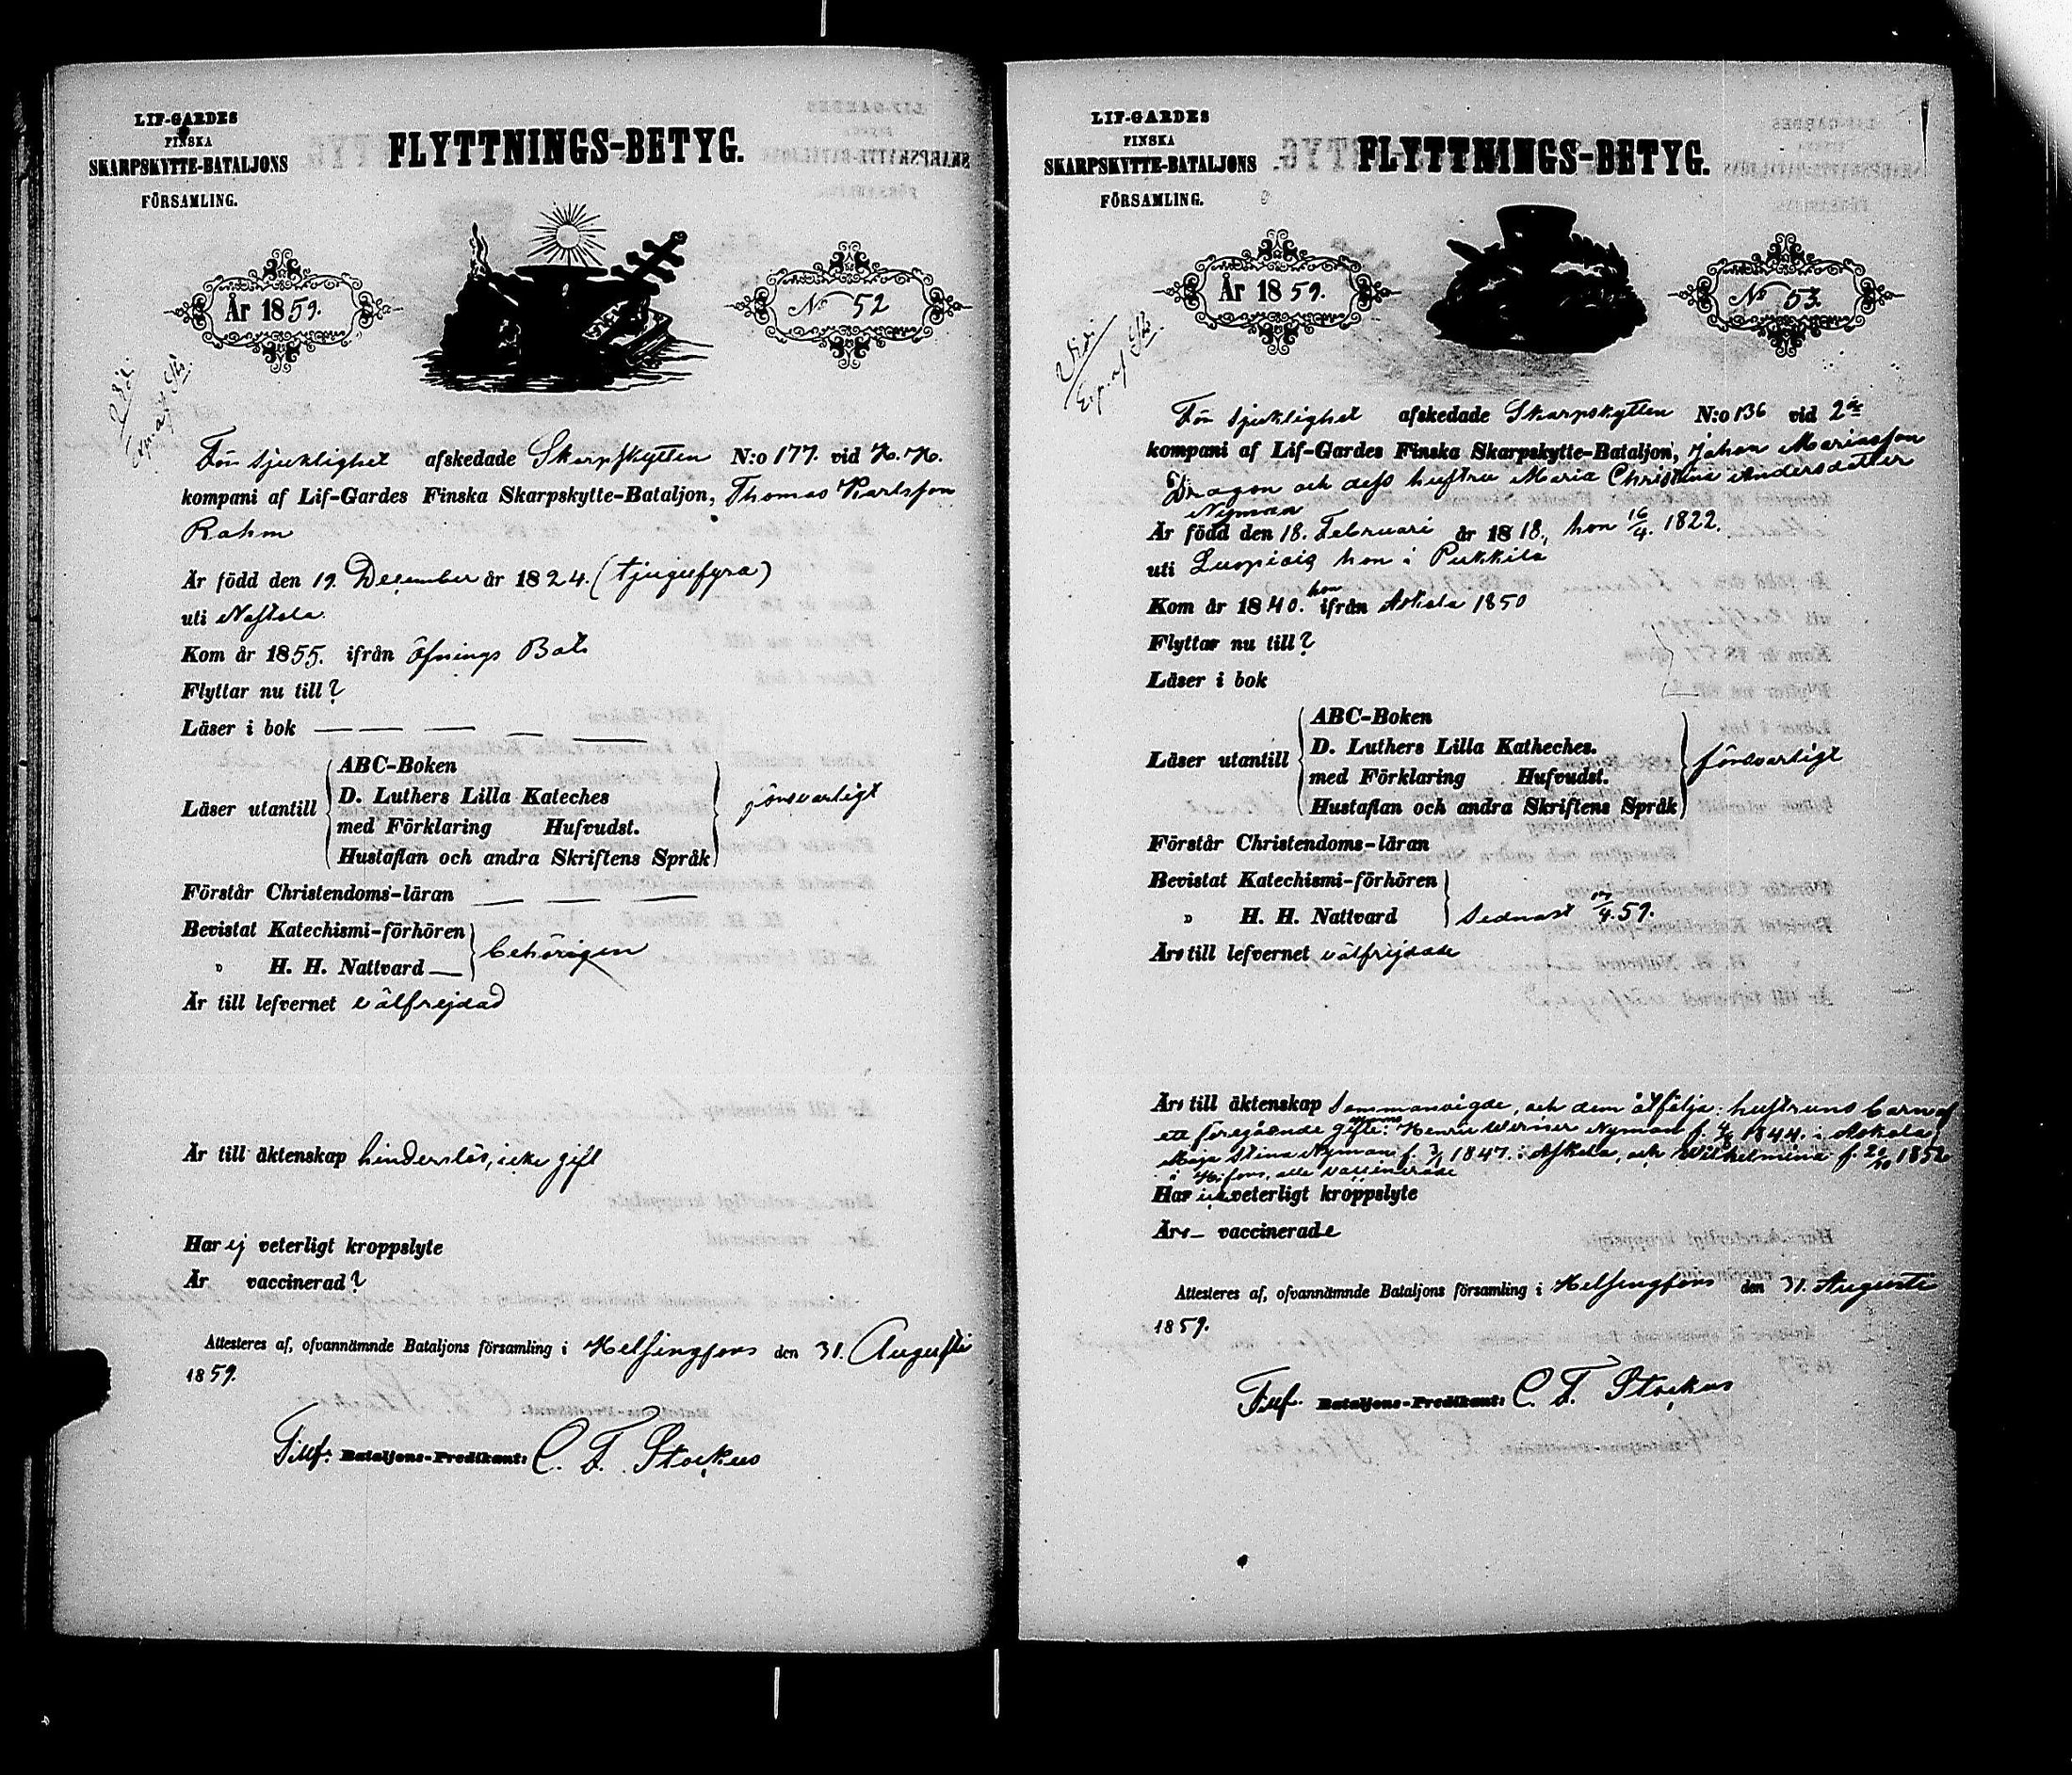 LIF-GARDES
FINSKA
SKARPSKYTTE-BATALJONS
FÖRSAMLING.
FLYTTNINGS-BETYG.
År 1859.
No 52
Vidi
För sjuklighet afskedade Skarpskytten N:o 177. vid H. K.
kompani af Lif-Gardes Finska Skarpskytte-Bataljon, Thomas Karlsson
Rahm
Är född den 19. December år 1824. (tjugufyra)
uti Nastola.
Kom år 1855. ifrån Öfnings Bat.
Flyttar nu till?
Läser i bok
Läser utantill
ABC-Boken
D. Luthers Lilla Kateches
med Förklaring Hufvudst.
Hustaflan och andra Skriftens Språk
försvarligt
Förstår Christendoms-läran
Bevistat Katechismi-förhören
" H. H. Nattvard
behörigen
Är till lefvernet välfrejdad
Är till äktenskap hinderslös, icke gift
Har ej veterligt kroppslyte
Är vaccinerad?
Attesteres af, ofvannämnde Bataljons församling i Helsingfors den 31. Augusti
1859.
Tillf. Bataljons-Predikant: C. F. Stockus
LIF-GARDES
FINSKA
SKARPSKYTTE-BATALJONS
FÖRSAMLING.
FLYTTNINGS-BETYG.
År 1859.
No 53.
Vidi
För sjuklighet afskedade Skarpskytten N:o 136 vid 2a
kompani af Lif-Gardes Finska Skarpskytte-Bataljon, Johan Mariasson
Dragon och dess hustru Maria Christina Andersdotter
Nyman
Är född den 18. Februari år 1818., hon 16/4. 1822.
uti Luopiois hon i Pukkila
Kom år 1840. hon ifrån Askola 1850
Flyttar nu till?
Läser i bok
Läser utantill
ABC-Boken
D. Luthers Lilla Katheches.
med Förklaring Hufvudst.
Hustaflan och andra Skriftens Språk
försvarligt
Förstår Christendoms-läran
Bevistat Katechismi-förhören
" H. H. Nattvard
sednast /4. 59.
Äro till lefvernet välfrejdade
Äro till äktenskap sammanvigde, och dem åtfölja: hustruns barn af
ett föregående gifte: Henric Werner Nyman f. 1844. i Askola,
Maja Stina Nyman f. 1847. i Askola, och Wilhelmina f. 20/10 1852
i H:fors, alla vaccinerade
Har icke veterligt kroppslyte
Äro vaccinerade
Attesteres af, ofvannämnde Bataljons församling i Helsingfors den 31. Augusti
1859.
Tillf. Bataljons-Predikant: C. F. Stockus